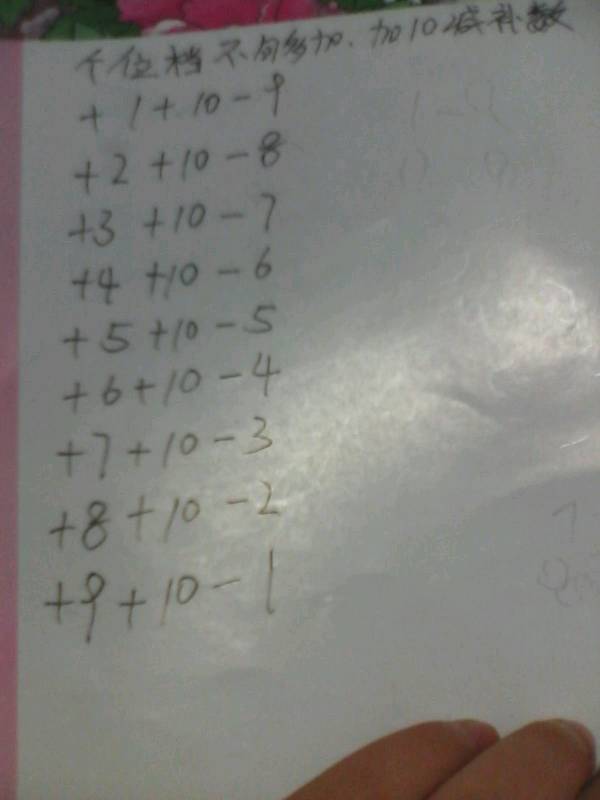 个位档不够多加、加10减补数
+1+10-9
+2+10-8
+3+10-7
+4+10-6
+5+10-5
+6+10-4
+7+10-3
+8+10-2
+9+10-1